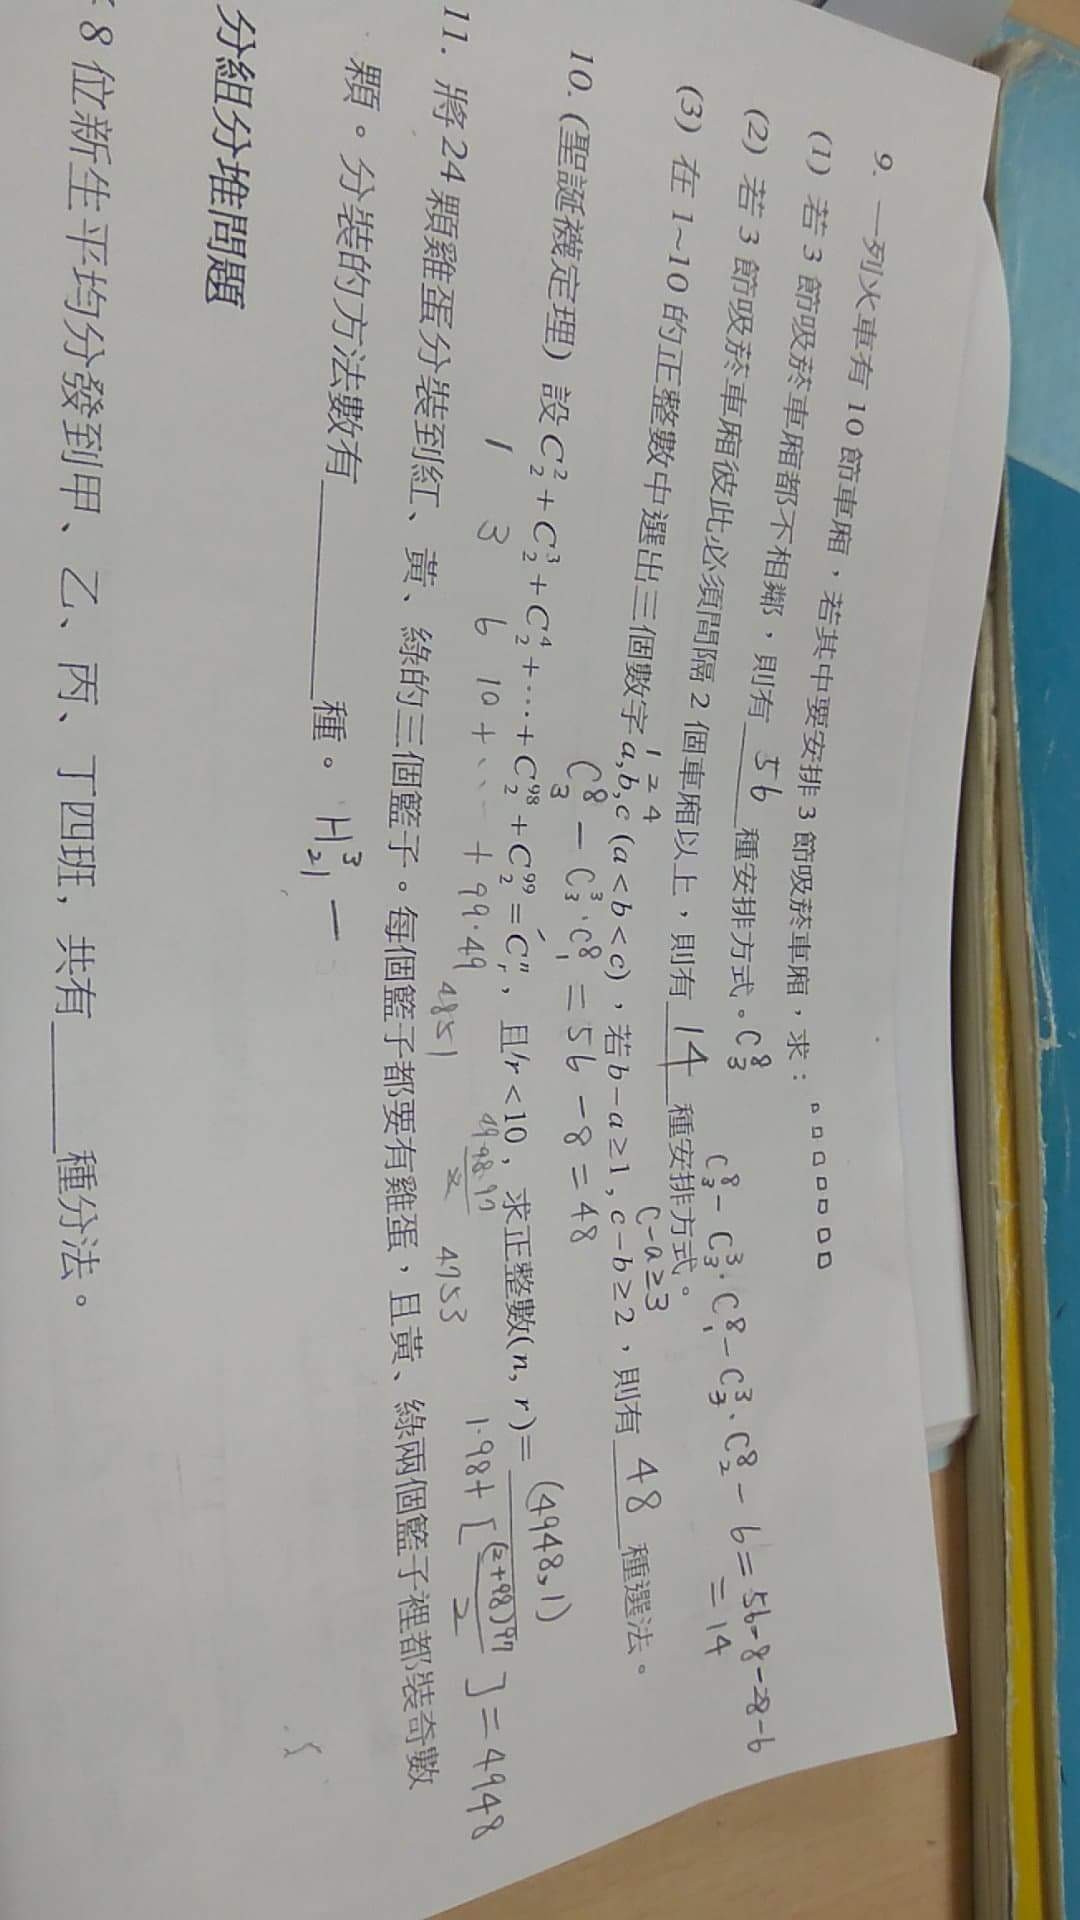 9. 一列火車有 10 節車廂,若其中要安排 3 節吸菸車廂,求: □□□□□□□
(1) 若 3 節吸菸車廂都不相鄰,則有 56 種安排方式。C⁸₃
(2) 若 3 節吸菸車廂彼此必須間隔 2 個車廂以上,則有 14 種安排方式。
C⁸₃ - C³₃·C⁸₁ - C³₃·C⁸₂ - 6 = 56-8-28-6
= 14
(3) 在 1~10 的正整數中選出三個數字 a,b,c (a<b<c),若 b-a≥1, c-b≥2,則有 48 種選法。
1 2 4
c-a≥3
C⁸₃ - C³₃·C⁸₁ = 56 - 8 = 48
10. (聖誕襪定理) 設 C²₂ + C³₂ + C⁴₂ + … + C⁹⁸₂ + C⁹⁹₂ = Cⁿᵣ,且 r<10,求正整數(n, r)= (4948,1)
1 3 6 10 + … + 99·49
4851
4953
1·98+[(2+98)97/2]=4948
11. 將 24 顆雞蛋分裝到紅、黃、綠的三個籃子。每個籃子都要有雞蛋,且黃、綠兩個籃子裡都裝奇數
顆。分裝的方法數有______種。 H³₂₁ -
分組分堆問題
8 位新生平均分發到甲、乙、丙、丁四班,共有____種分法。